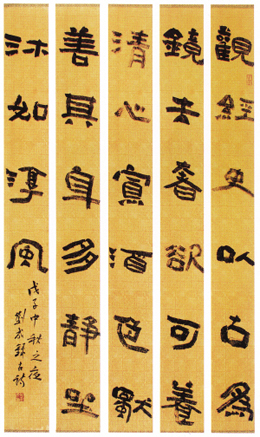 觀經史以古為
鏡去奢欲可養
清心寡酒色默
善其身多靜坐
沐如淳風
戊子中秋之夜